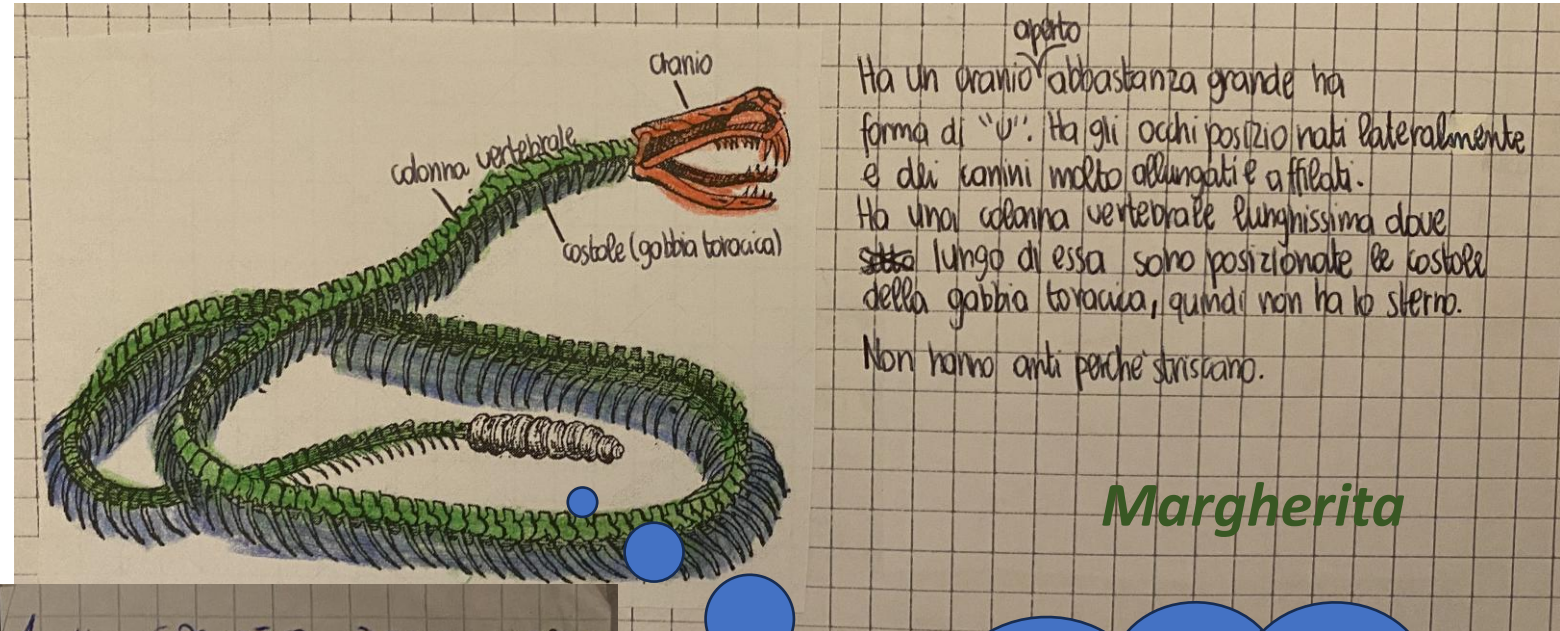 cranio
colonna vertebrale
costole (gabbia toracica)
aperto
Ha un cranio abbastanza grande ha
forma di "U". Ha gli occhi posizionati lateralmente
e dei canini molto allungati e affilati.
Ha una colonna vertebrale lunghissima dove
lungo di essa sono posizionate le costole
della gabbia toracica, quindi non ha lo sterno.
Non hanno arti perché strisciano.
Margherita